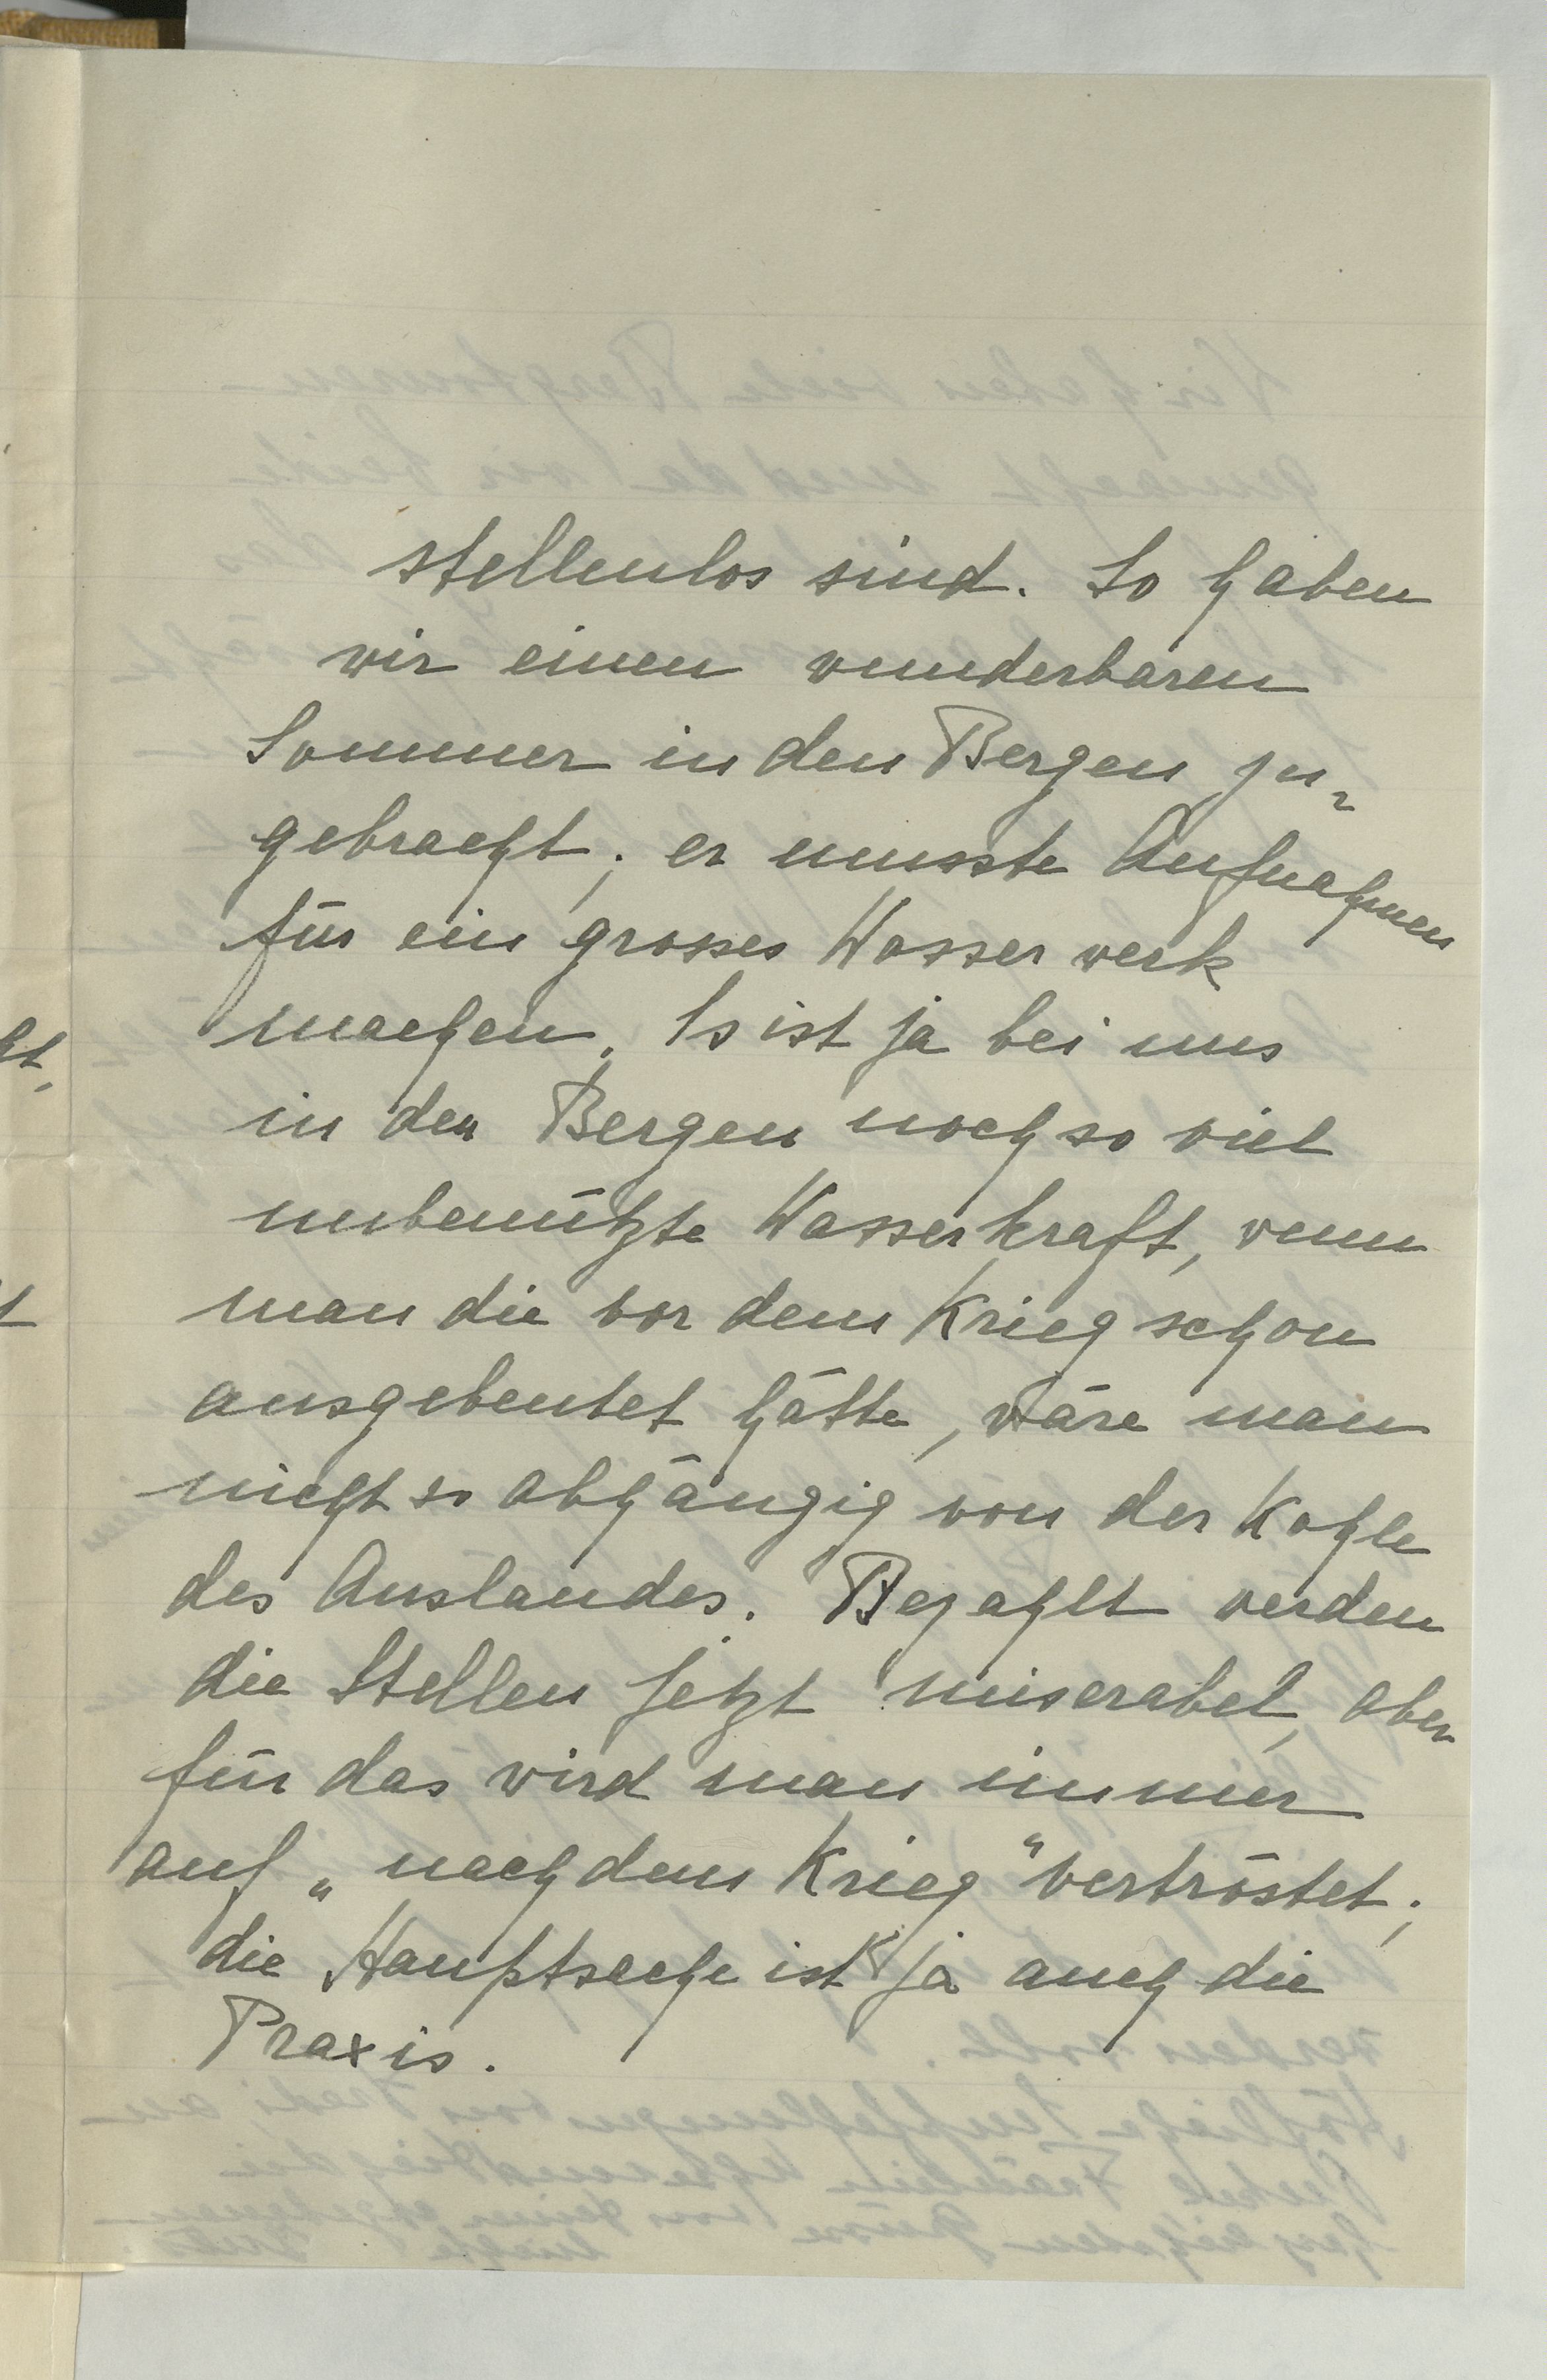 stellenlos sind. So haben
wir einen wunderbaren
Sommer in den Bergen zu-
gebracht; er musste Aufnahmen
für ein grosses Wasserwerk
machen. Es ist ja bei uns
in den Bergen noch so viel
unbenützte Wasserkraft, wenn
man die vor dem Krieg schon
ausgebeutet hätte, wäre man
nicht so abhängig von der Kohle
des Auslandes. Bezahlt werden
die Stellen jetzt miserabel, aber
für das wird man immer
auf „nach dem Krieg" vertröstet;
die Hauptsache ist ja auch die
Praxis.